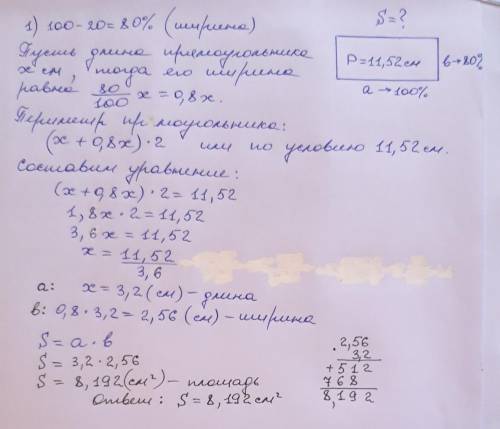 1) 100-20=80% (ширина)
S=?
Пусть длина прямоугольника
x см, тогда его ширина
равна 80/100 x = 0,8x.
P=11,52см
в→80%
a→100%
Периметр прямоугольника:
(x+0,8x)·2 или по условию 11,52см.
Составим уравнение:
(x+0,8x)·2=11,52
1,8x·2=11,52
3,6x=11,52
x=11,52/3,6
a: x=3,2(см)-длина
в: 0,8·3,2=2,56(см)-ширина
S=a·в
S=3,2·2,56
S=8,192(см²)-площадь
Ответ: S=8,192см²
2,56
3,2
+512
768
8,192